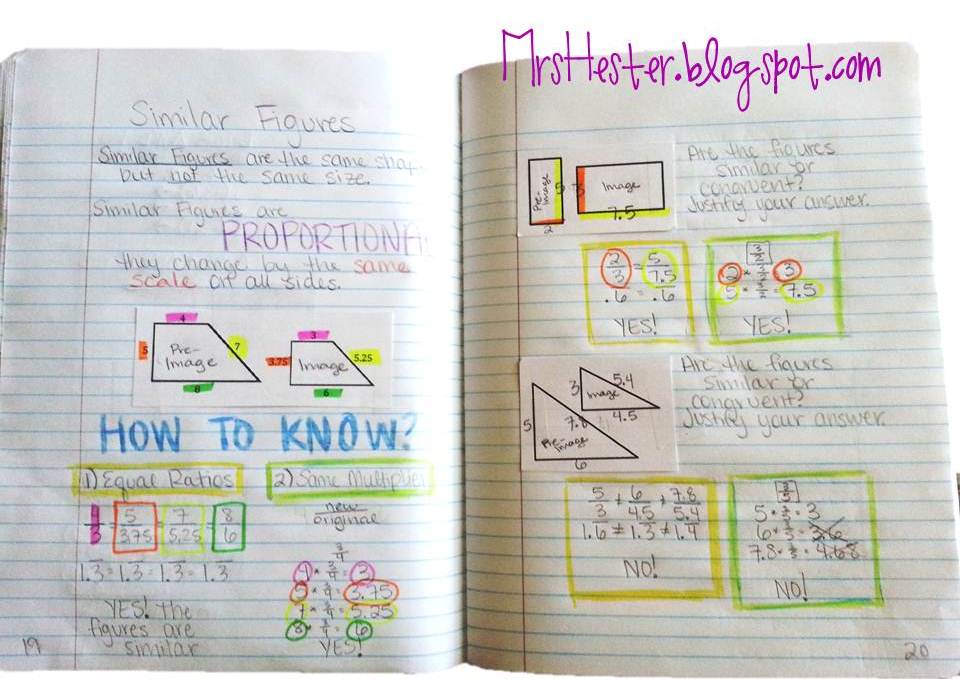 MrsHester.blogspot.com
Similar Figures
Similar Figures are the same shap
but not the same size.
Similar Figures are
PROPORTIONA
they change by the same
scale on all sides.
4
5
Pre-
Image
7
8
3
3.75
Image
5.25
6
HOW TO KNOW?
1) Equal Ratios
4/3 = 5/3.75 = 7/5.25 = 8/6
1.3 = 1.3 = 1.3 = 1.3
YES! The
figures are
similar
2) Same Multiplier
new
original
3/4
4 × 3/4 = 3
5 × 3/4 = 3.75
7 × 3/4 = 5.25
8 × 3/4 = 6
YES!
19
Pre-
Image
5
2
3
Image
7.5
Are the figures
similar or
congruent?
Justify your answer.
2/3 = 5/7.5
.6 = .6
YES!
3/2
2 × 3/2 = 3
5 × 3/2 = 7.5
YES!
5
7.8
Pre-
Image
6
3
5.4
Image
4.5
Are the figures
similar or
congruent?
Justify your answer.
5/3 ≠ 6/4.5 ≠ 7.8/5.4
1.6 ≠ 1.3 ≠ 1.4
NO!
3/5
5 × 3/5 = 3
6 × 3/5 = 3.6
7.8 × 3/5 = 4.68
NO!
20